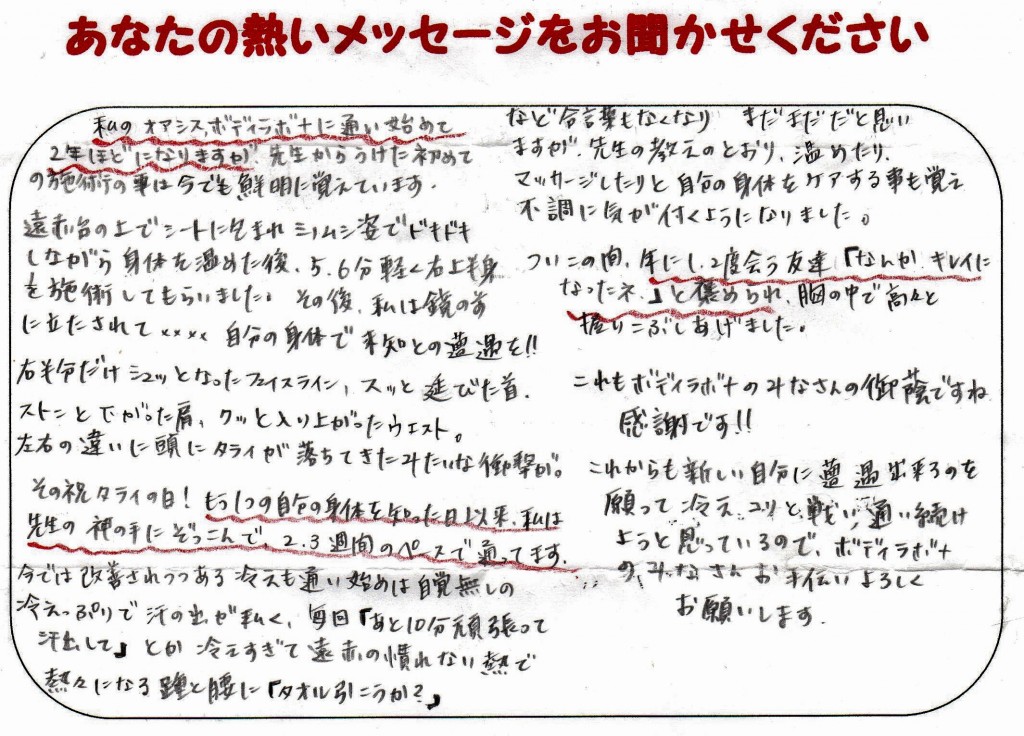 あなたの熱いメッセージをお聞かせください
私のオアシス、ボディラボナに通い始めて
2年ほどになりますが、先生からうけた初めて
の施術の事は今でも鮮明に覚えています。
遠赤台の上でシートに包まれミノムシ姿でドキドキ
しながら身体を温めた後、5.6分軽く右上半身
を施術してもらいました。その後、私は鏡の前
に立たされて××××自分の身体で未知との遭遇を!!
右半分だけシュッとなったフェイスライン、スッと延びた首、
ストンと下がった肩、クッと入り上がったウエスト。
左右の違いに頭にタライが落ちてきたみたいな衝撃が。
その祝タライの日!もう1つの自分の身体を知った日以来、私は
先生の神の手にぞっこんで、2.3週間のペースで通ってます。
今では改善されつつある冷えも通い始めは自覚無しの
冷えっぷりで汗の出が私く、毎回「あと10分頑張って
汗出して」とか冷えすぎて遠赤の慣れない熱で
熱々になる踵と腰に「タオル引こうか?」
など合言葉もなくなり まだまだだと思い
ますが、先生の教えのとおり、温めたり、
マッサージしたりと自分の身体をケアする事も覚え
不調に気が付くようになりました。
ついこの間、年に1.2度会う友達「なんか、キレイに
なったネ。」と褒められ、胸の中で高々と
握りこぶしあげました。
これもボディラボナのみなさんの御蔭ですね
感謝です!!
これからも新しい自分に遭遇出来るのを
願って冷え、コリと戦い、通い続け
ようと思っているので、ボディラボナ
のみなさんお手伝いよろしく
お願いします。